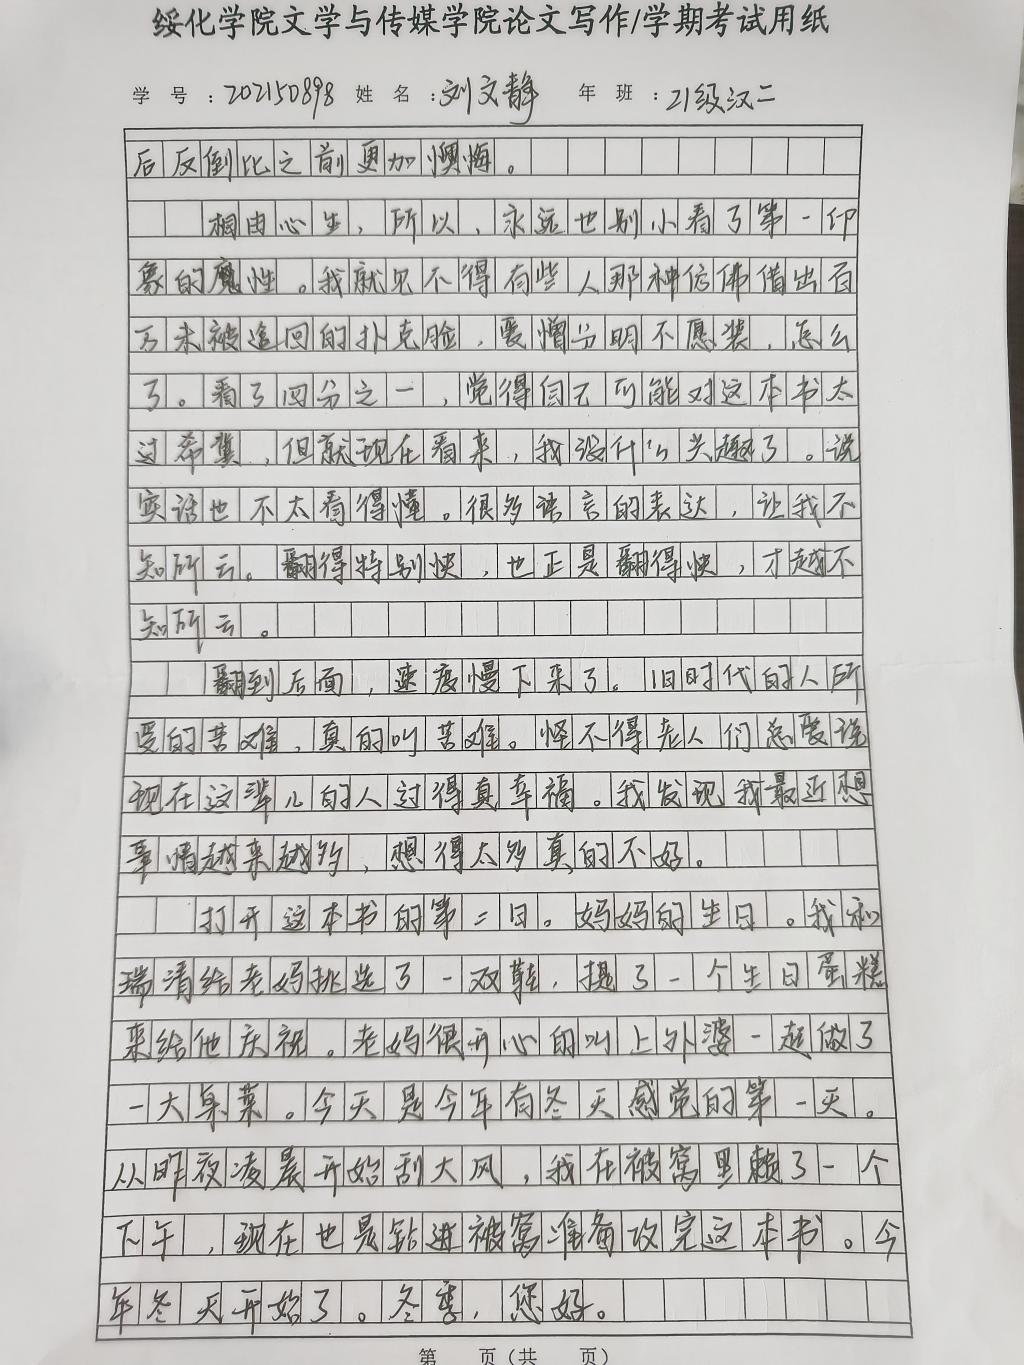 绥化学院文学与传媒学院论文写作/学期考试用纸
学 号 :202150898 姓 名 :刘文静 年 班 :21级汉二
后反倒比之前更加懊悔。
相由心生,所以,永远也别小看了第一印
象的魔性。我就见不得有些人那神仿佛借出百
万未被追回的扑克脸,爱憎分明不愿装,怎么
了。看了四分之一,觉得自己可能对这本书太
过希冀,但就现在看来,我没什么兴趣了。说
实话也不太看得懂。很多语言的表达,让我不
知所云。翻得特别快,也正是翻得快,才越不
知所云。
翻到后面,速度慢下来了。旧时代的人所
受的苦难,真的叫苦难。怪不得老人们总爱说
现在这辈儿的人过得真幸福。我发现我最近想
事情越来越多,想得太多真的不好。
打开这本书的第二日。妈妈的生日。我和
瑞清给老妈挑选了一双鞋,提了一个生日蛋糕
来给他庆祝。老妈很开心的叫上外婆一起做了
一大桌菜。今天是今年有冬天感觉的第一天。
从昨夜凌晨开始刮大风,我在被窝里赖了一个
下午,现在也是钻进被窝准备攻完这本书。今
年冬天开始了。冬季,您好。
第 页(共 页)